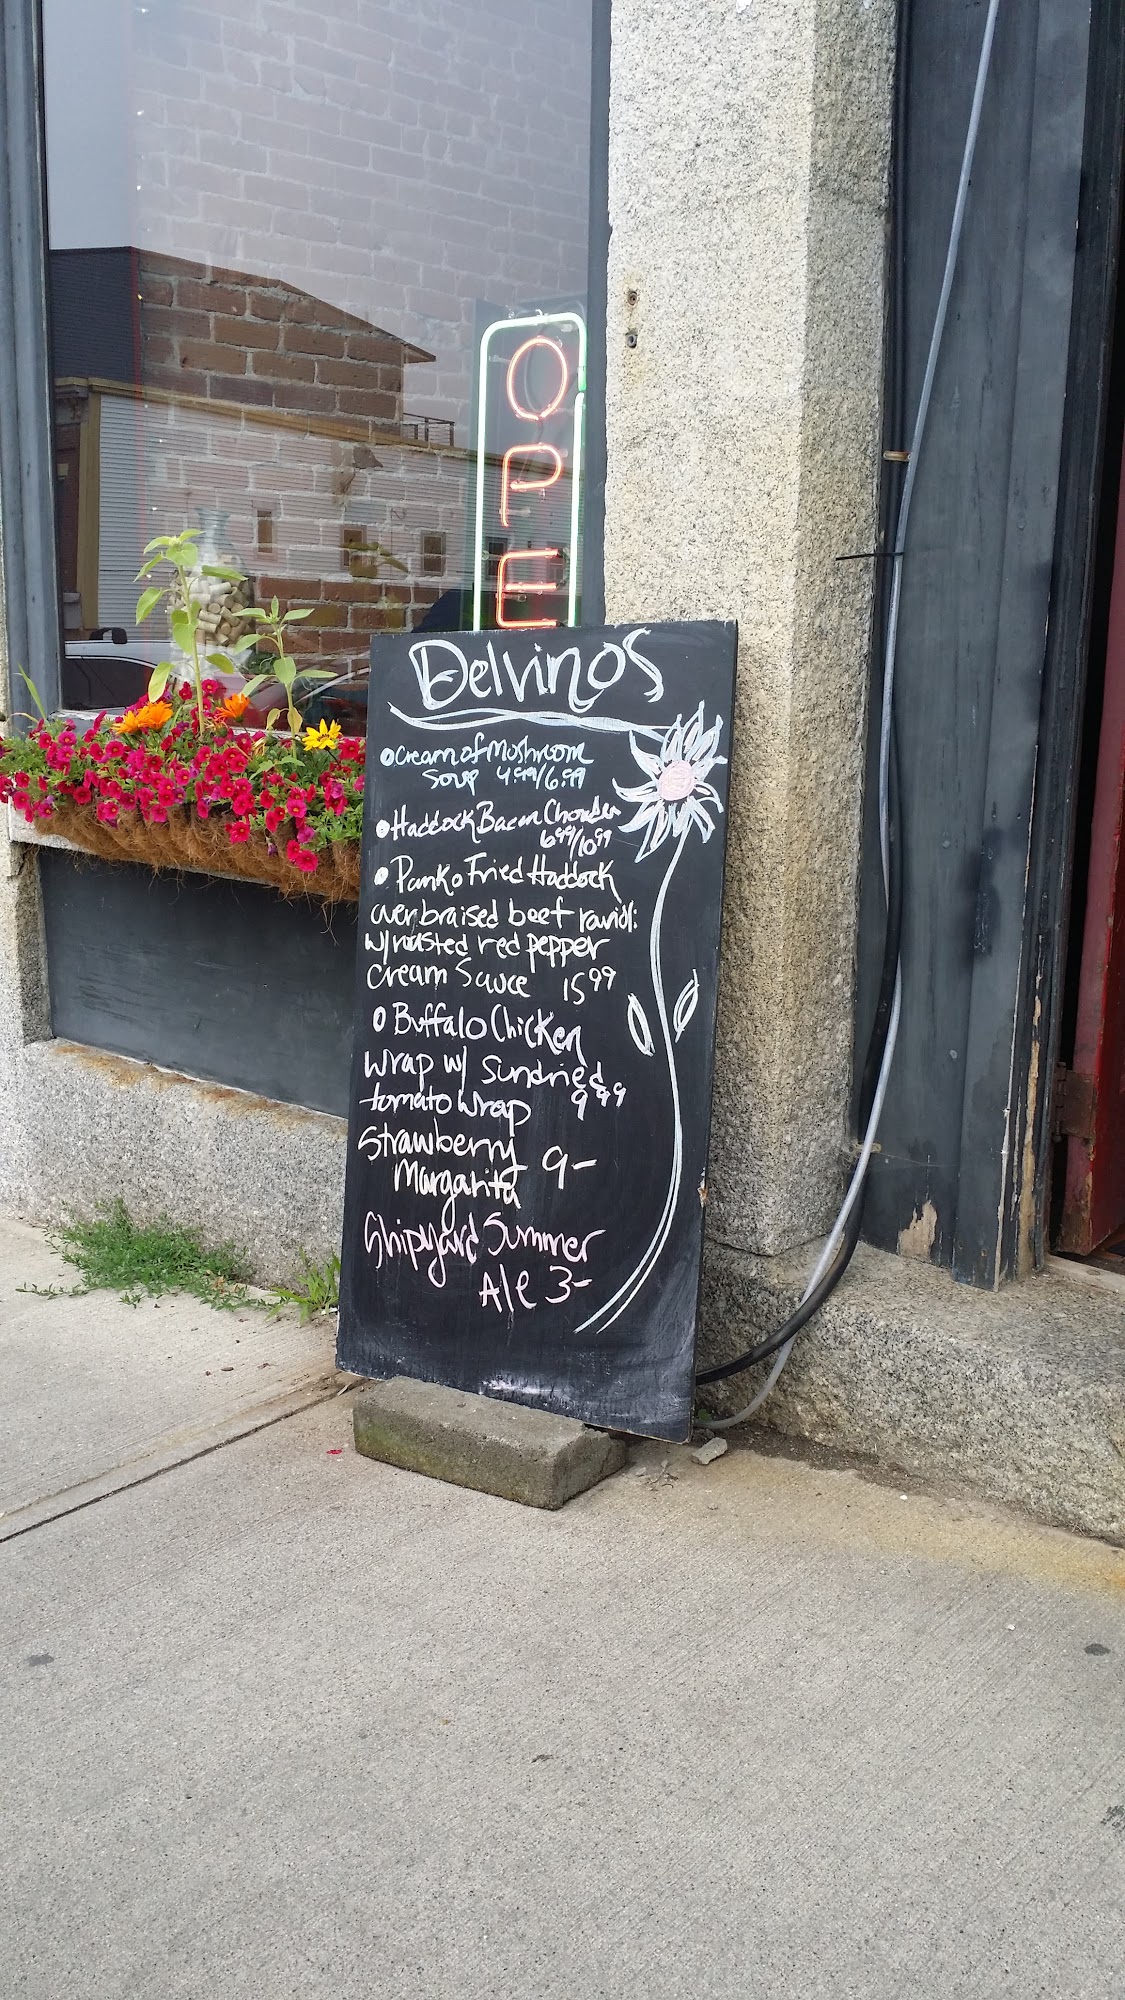 OPE
Delvinos
Cream of Mushroom
Soup 4.99/6.99
Haddock Bacon Chowder
6.99/10.99
Panko Fried Haddock
over braised beef ravioli
w/ roasted red pepper
Cream Sauce 15.99
Buffalo Chicken
Wrap w/ Sundried
tomato wrap 9.99
Strawberry
Margarita 9-
Shipyard Summer
Ale 3-